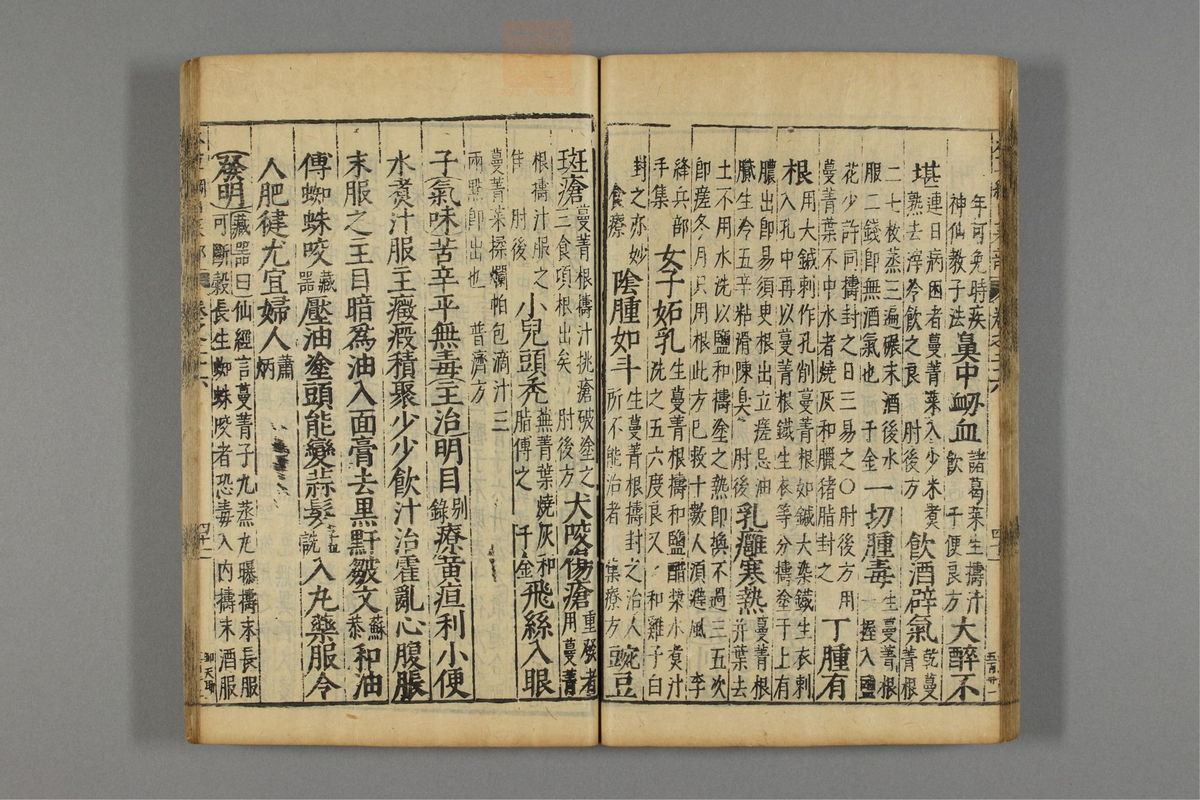 年可免時疾
神仙教子法
鼻中衂血
諸葛菜生擣汁
飲 千便良方
大醉不
堪
連日病困者蔓菁菜入少米煑
熟去滓冷飲之良 肘後方
飲酒辟氣
乾蔓
菁根
二七枚蒸三遍碾末酒後水
服二錢即無酒氣也 千金
一切腫毒
生蔓菁根
一握入鹽
花少許同擣封之日三易之〇肘後方用
蔓菁葉不中水者燒灰和臘猪脂封之
丁腫有
根
用大鍼刺作孔削蔓菁根如鍼大染鐵生衣刺
入孔中再以蔓菁根鐵生衣等分擣塗于上有
膿出即易須臾根出立瘥忌油
臟生冷五辛粘滑陳臭 肘後
乳癰寒熱
蔓菁根
并葉去
土不用水洗以鹽和擣塗之熱即換不過三五次
即瘥冬月只用根此方已救十數人須避風 李
絳兵部
手集
女子妬乳
生蔓菁根擣和鹽醋漿水煑汁
洗之五六度良又 和雞子白
封之亦妙
食療
陰腫如斗
生蔓菁根擣封之治人
所不能治者 集療方
豌豆
斑瘡
蔓菁根擣汁挑瘡破塗之
三食頃根出矣 肘後方
犬咬傷瘡
重發者
用蔓菁
根擣汁服之
佳 肘後
小兒頭禿
蕪菁葉燒灰和
脂傅之 千金
飛絲入眼
蔓菁菜揉爛帕包滴汁三
兩點即出也 普濟方
子氣味苦辛平無毒主治明目別錄療黃疸利小便
水煑汁服主癥瘕積聚少少飲汁治霍亂心腹脹
末服之主目暗爲油入面膏去黑䵟皺文蘇恭和油
傅蜘蛛咬藏器壓油塗頭能變蒜髮孟詵入丸藥服令
人肥健尤宜婦人蕭炳
發明
藏器曰仙經言蔓菁子九蒸九曝擣末長服
可斷穀長生蜘蛛咬者恐毒入內擣末酒服
四十二